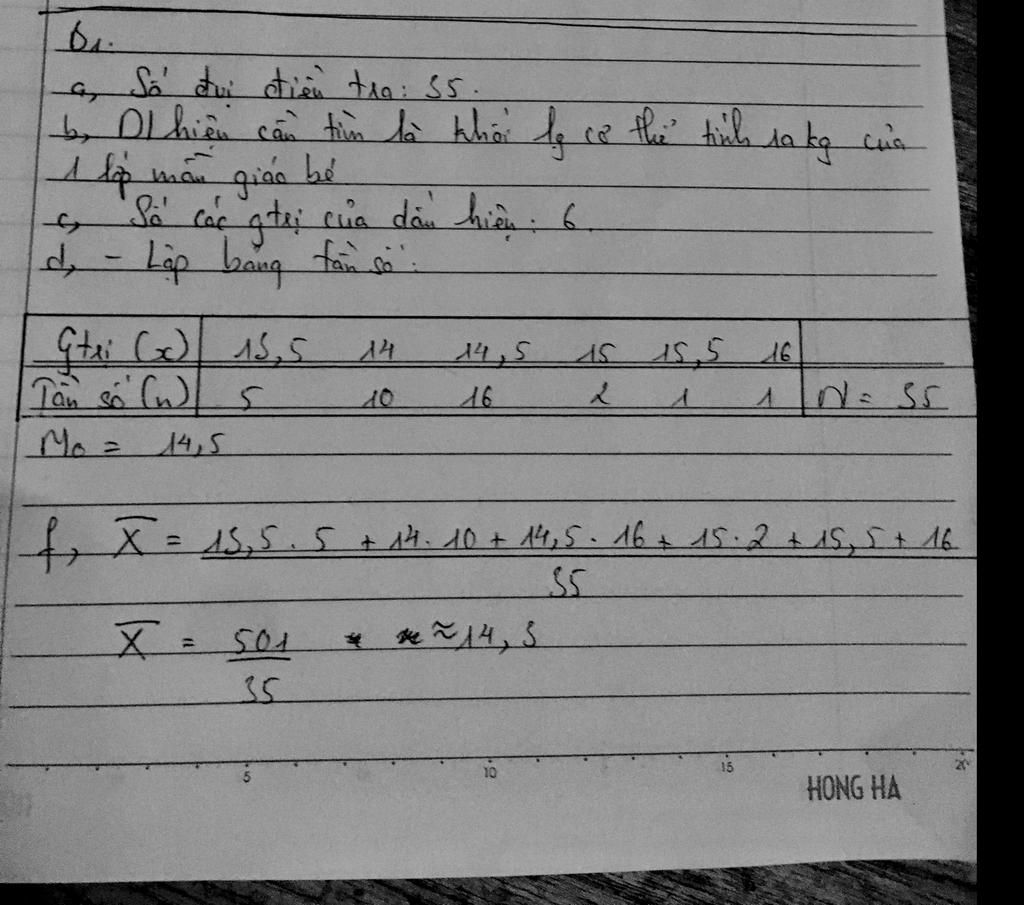 B1.
a, Số đvị điều tra: 35.
b, D/hiệu cần tìm là khối lg cơ thể tính ra kg của
1 lớp mẫu giáo bé
c, Số các gtrị của dấu hiệu: 6.
d, - Lập bảng tần số:
Gtrị (x) 13,5 14 14,5 15 15,5 16
Tần số (n) 5 10 16 2 1 1 N = 35
Mo = 14,5
f, X̄ = 13,5 . 5 + 14 . 10 + 14,5 . 16 + 15 . 2 + 15,5 + 16
35
X̄ = 501 ≈ 14,3
35
5 10 15 20
HONG HA